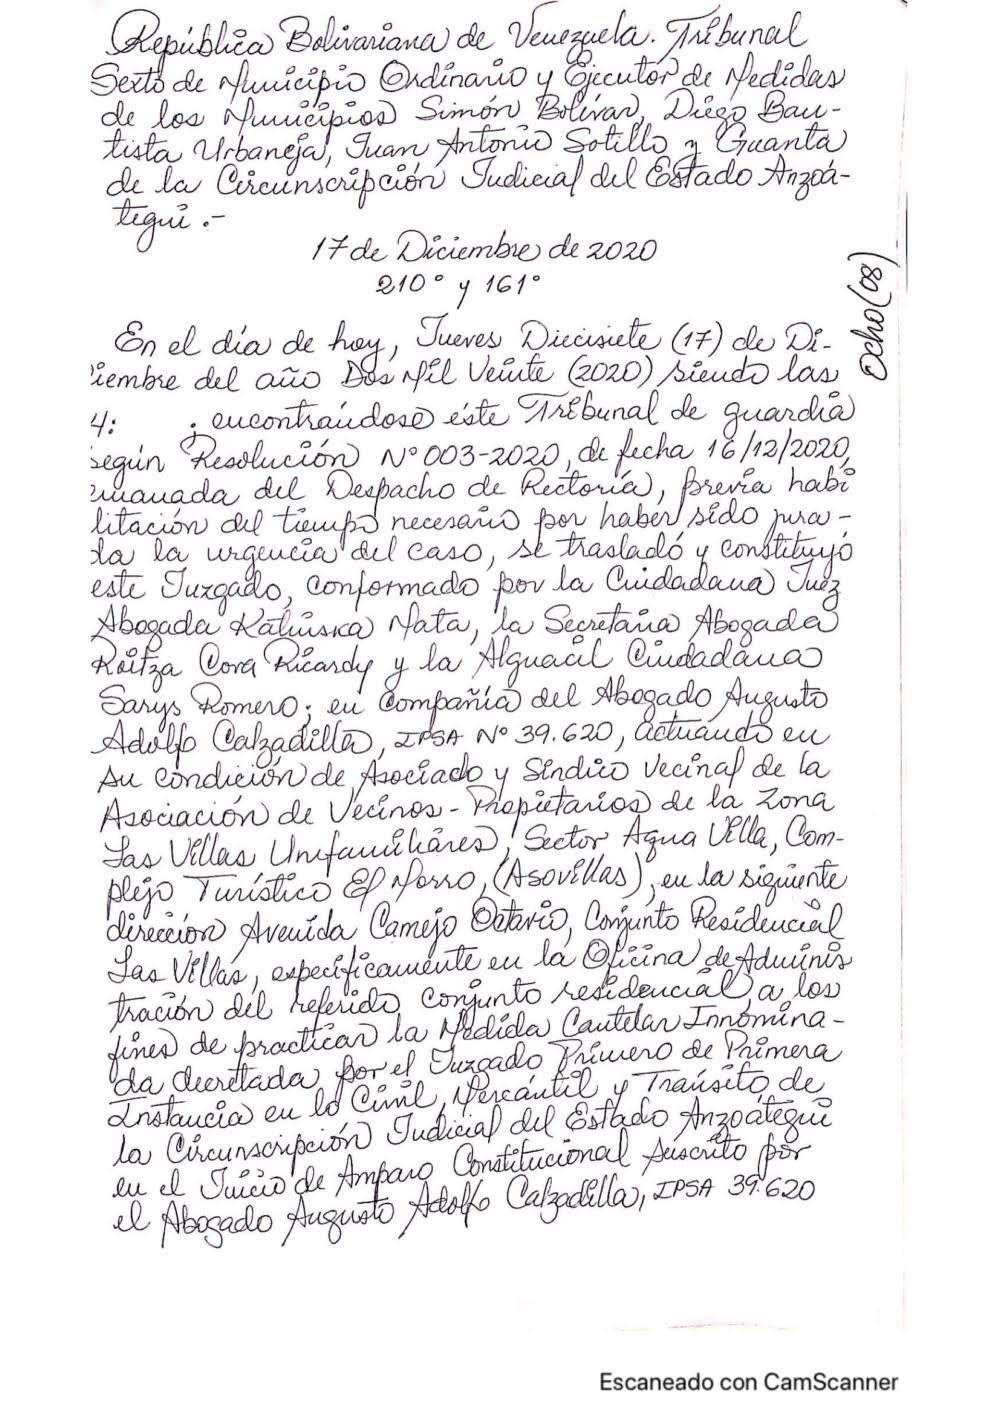 República Bolivariana de Venezuela. Tribunal
Sexto de Municipio Ordinario y Ejecutor de Medidas
de los Municipios Simón Bolívar, Diego Bau-
tista Urbaneja, Juan Antonio Sotillo y Guanta
de la Circunscripción Judicial del Estado Anzoá-
tegui.-
17 de Diciembre de 2020
210° y 161°
Ocho (08)
En el día de hoy, Jueves Diecisiete (17) de Di-
iembre del año Dos Mil Veinte (2020) siendo las
4: ; encontrándose éste Tribunal de guardia
según Resolución N° 003-2020, de fecha 16/12/2020,
emanada del Despacho de Rectoría, previa habi
litación del tiempo necesario por haber sido jura-
da la urgencia del caso, se trasladó y constituyó
este Juzgado, conformado por la Ciudadana Juez
Abogada Kaliuska Mata, la Secretaria Abogada
Raitza Cova Ricardy y la Alguacil Ciudadana
Sarys Romero; en compañía del Abogado Augusto
Adolfo Calzadilla, IPSA N° 39.620, actuando en
su condición de Asociado y Síndico Vecinal de la
Asociación de Vecinos - Propietarios de la Zona
Las Villas Unifamiliares, Sector Agua Villa, Com-
plejo Turístico El Morro, (Asovillas), en la siguiente
dirección Avenida Camejo Octavio, Conjunto Residencial
Las Villas, específicamente en la Oficina de Adminis
tración del referido conjunto residencial, a los
fines de practicar la Medida Cautelar Innomina-
da decretada por el Juzgado Primero de Primera
Instancia en lo Civil, Mercantil y Tránsito de
la Circunscripción Judicial del Estado Anzoátegui
en el Juicio de Amparo Constitucional suscrito por
el Abogado Augusto Adolfo Calzadilla, IPSA 39.620
Escaneado con CamScanner